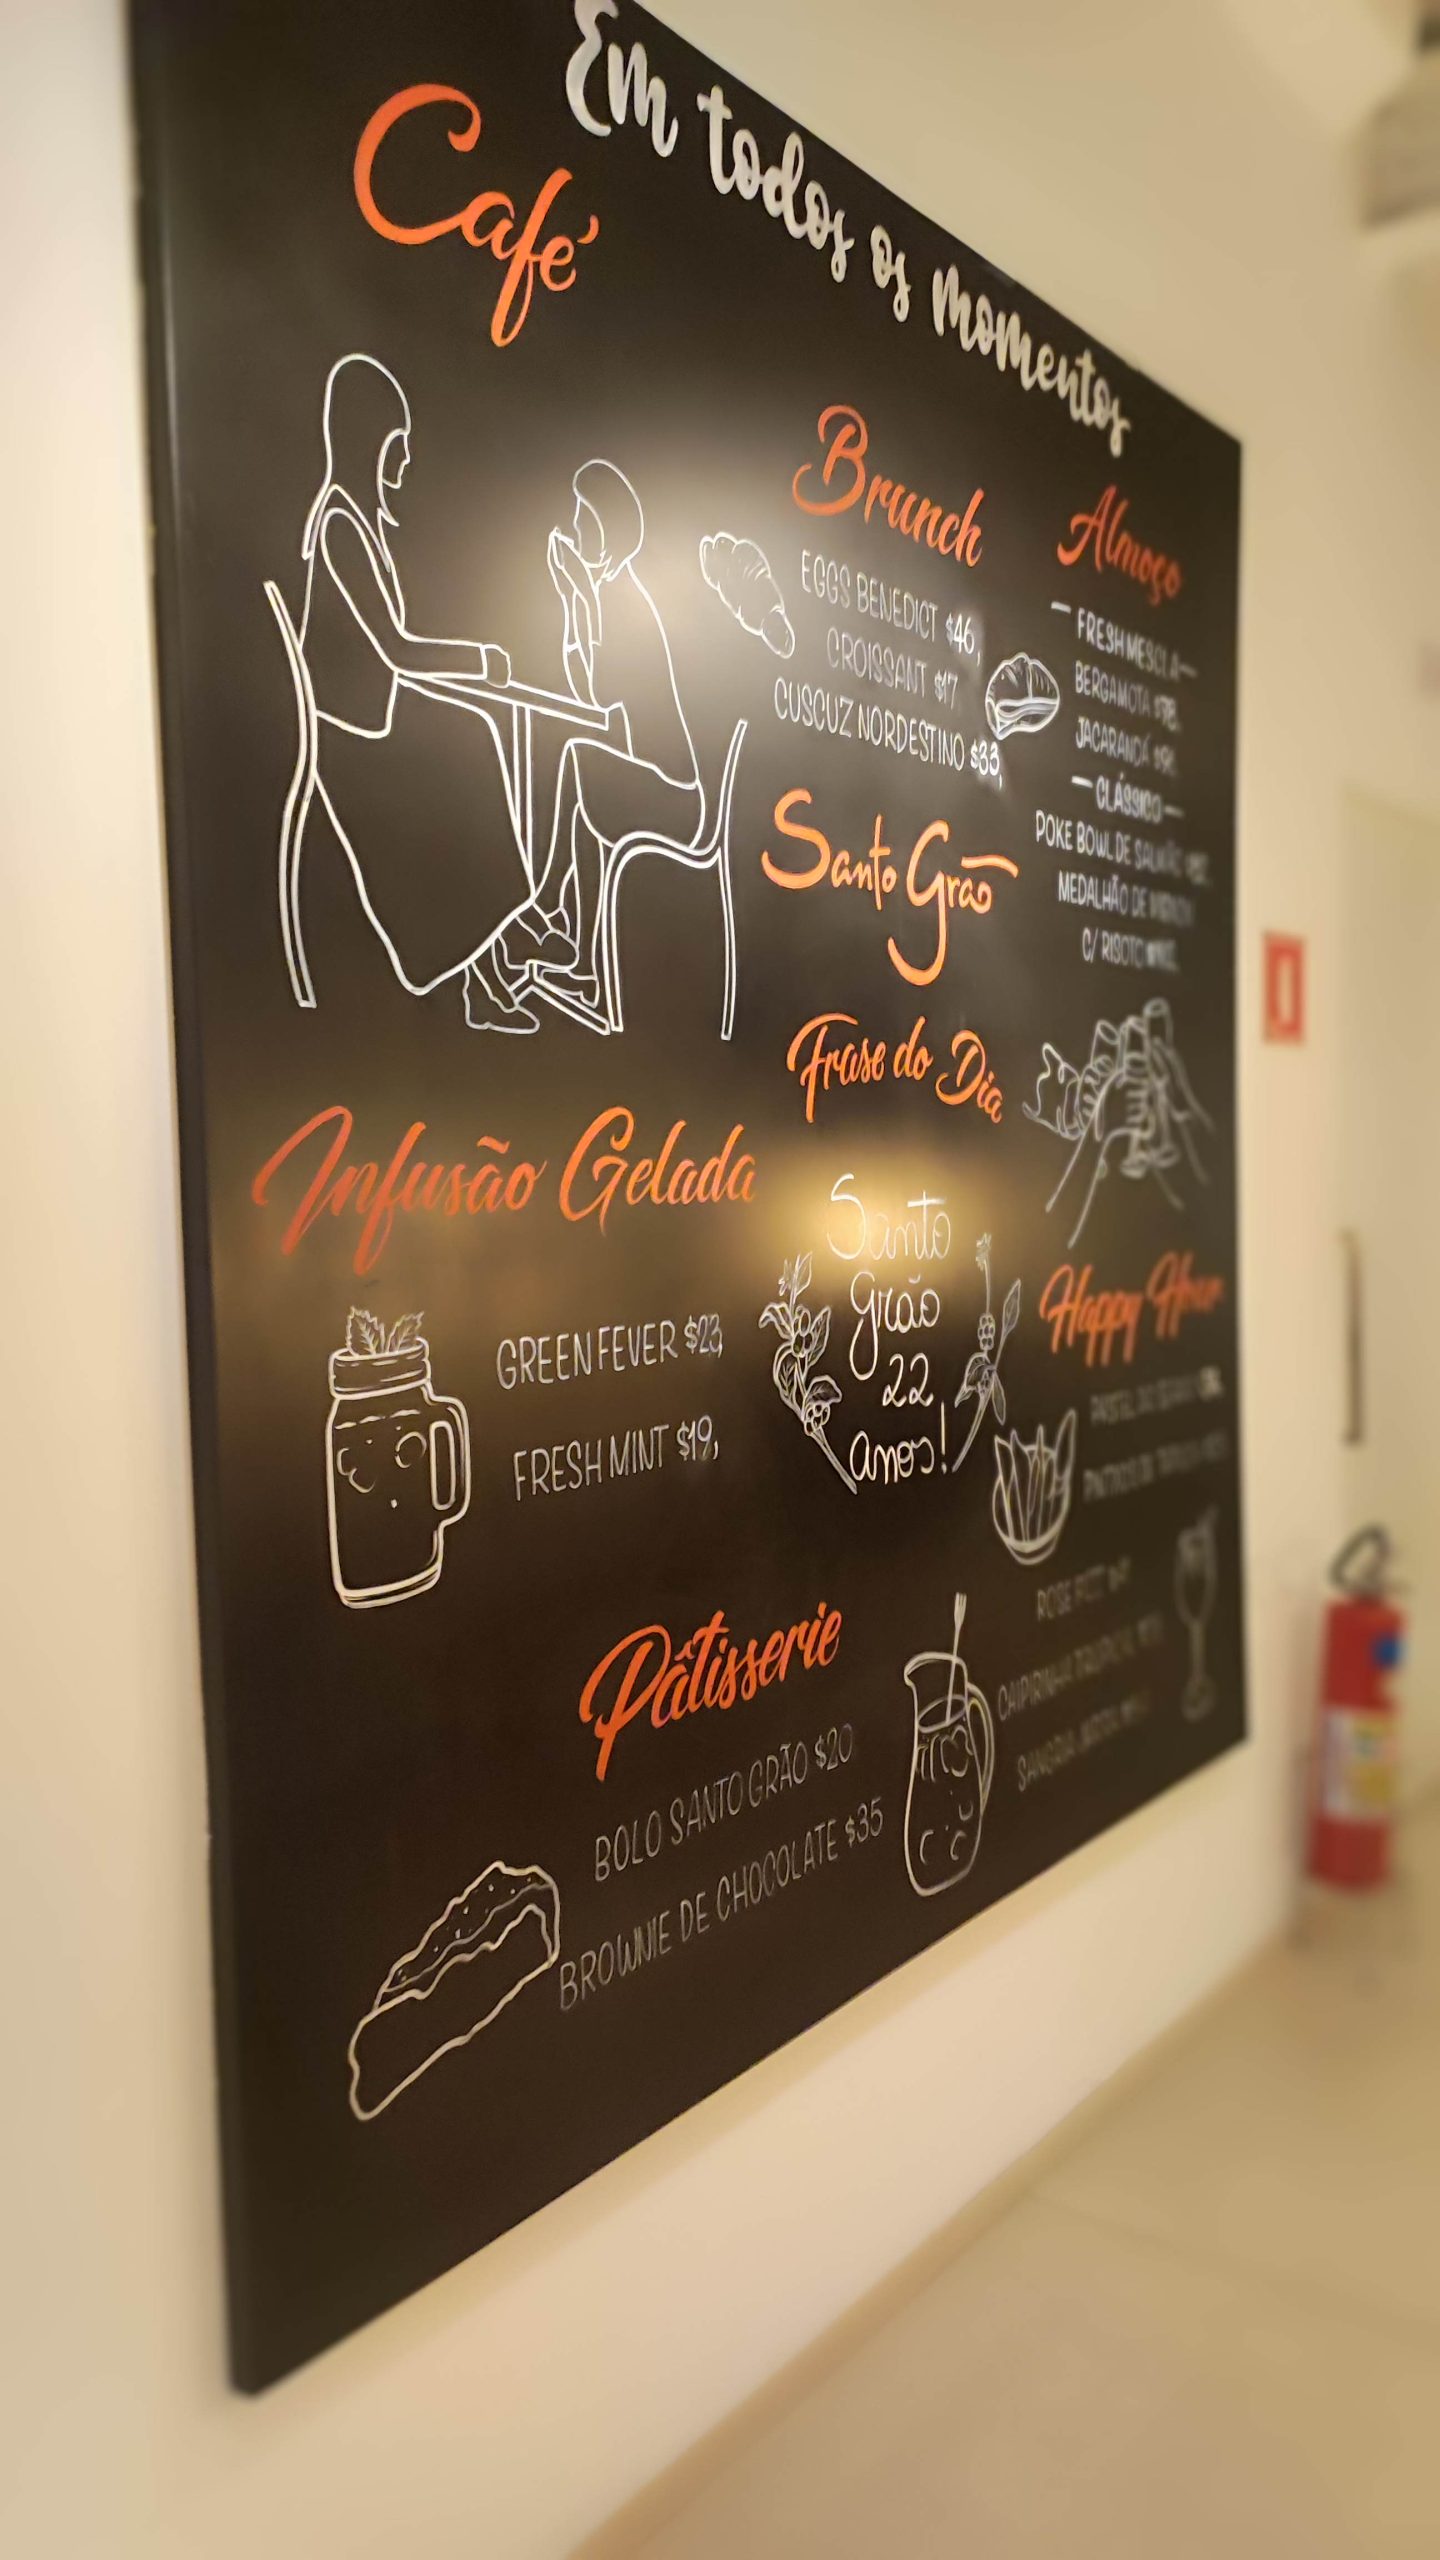 Em todos os momentos
Café
Brunch
EGGS BENEDICT $46,
CROISSANT $17,
CUSCUZ NORDESTINO $33,
Almoço
— FRESH MESCLA —
BERGAMOTA
JACARANDÁ
— CLÁSSICO —
POKE BOWL DE SALMÃO
MEDALHÃO DE MIGNON
C/ RISOTO
Santo Grão
Frase do Dia
Santo
Grão
22
anos!
Infusão Gelada
GREEN FEVER $23,
FRESH MINT $19,
Happy Hour
ROSE
CAIPIRINHA TROPICAL
SANGRIA
Pâtisserie
BOLO SANTO GRÃO $20
BROWNIE DE CHOCOLATE $35